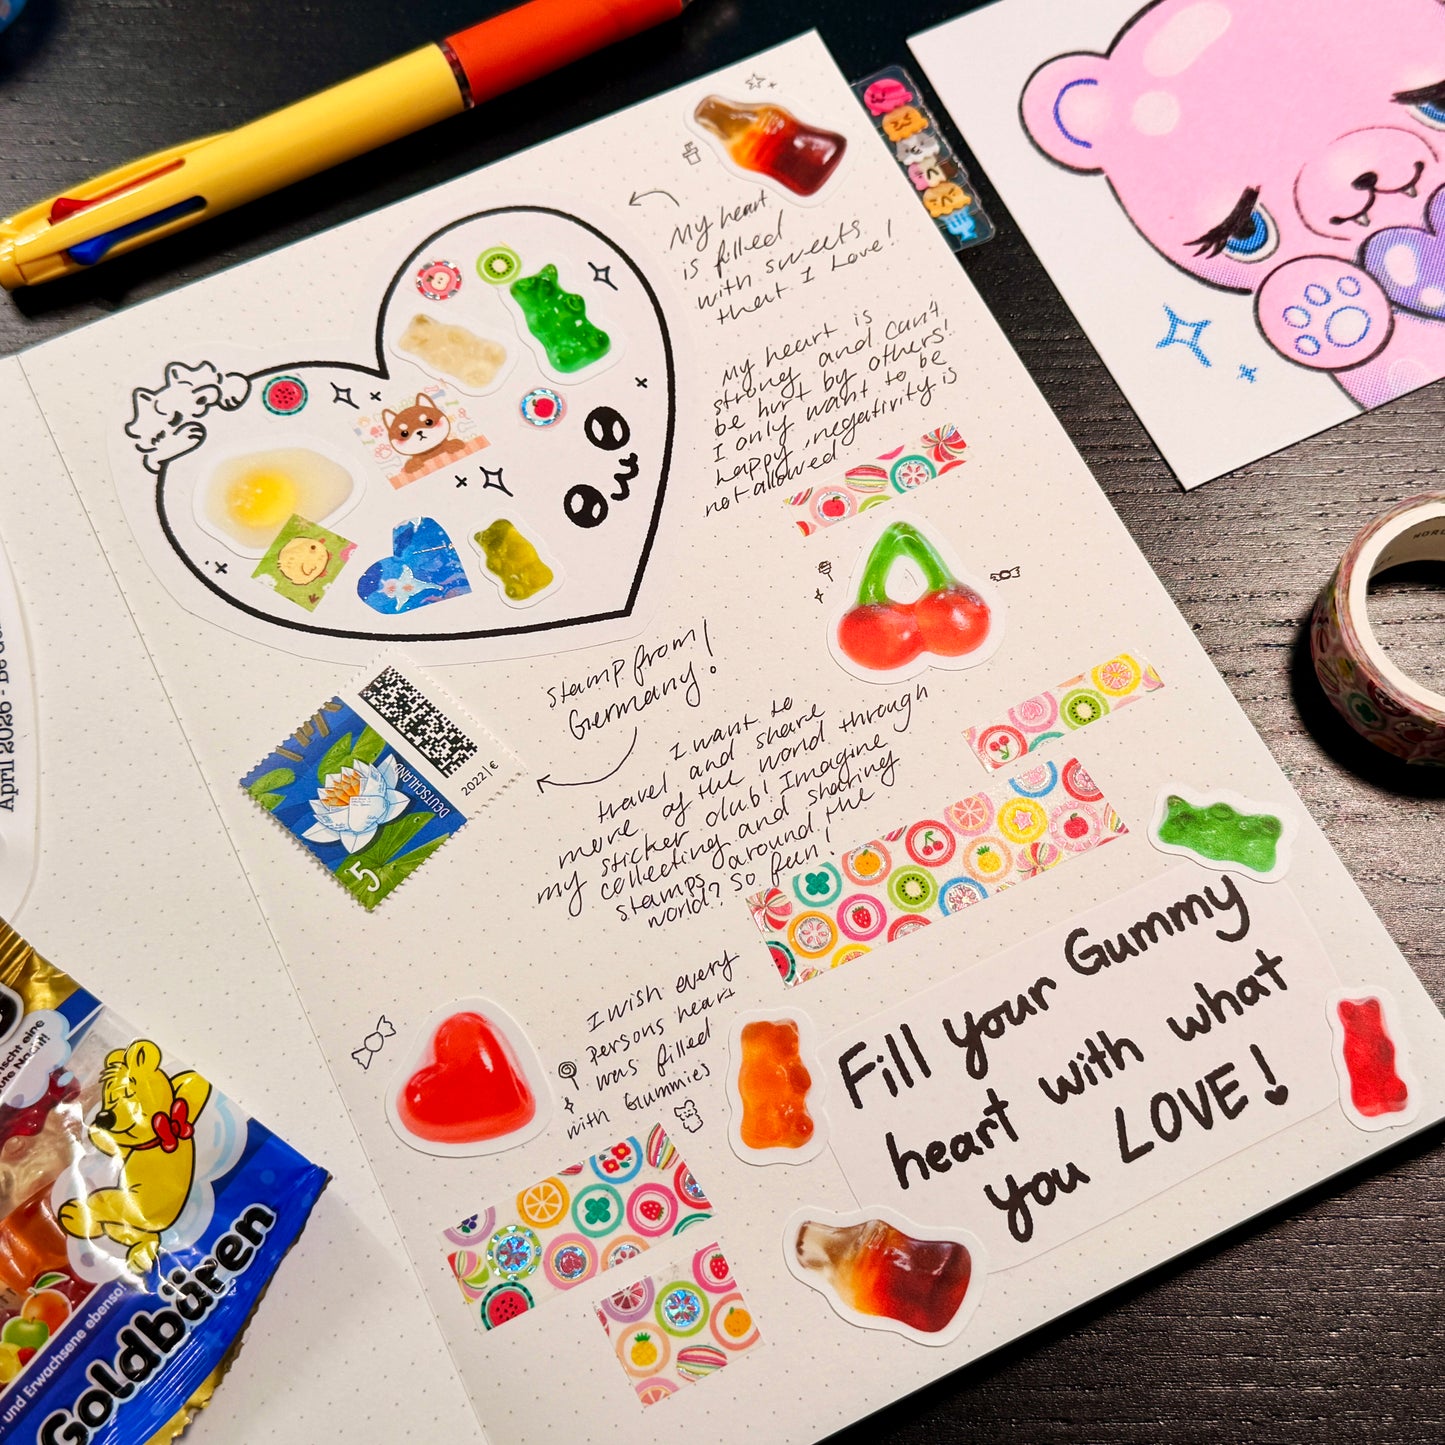 My heart
is filled
with sweets
that I Love!
My heart is
strong and can't
be hurt by others!
I only want to be
happy, negativity is
not allowed
stamp from
Germany!
DEUTSCHLAND
2022 | €
5
I want to
travel and share
more of the world through
my sticker club! Imagine
collecting and sharing
stamps around the
world? So fun!
I wish every
persons heart
was filled
with Gummies
Fill your Gummy
heart with what
you LOVE!
April 2026 - Be
Goldbären
und Erwachsene ebenso!